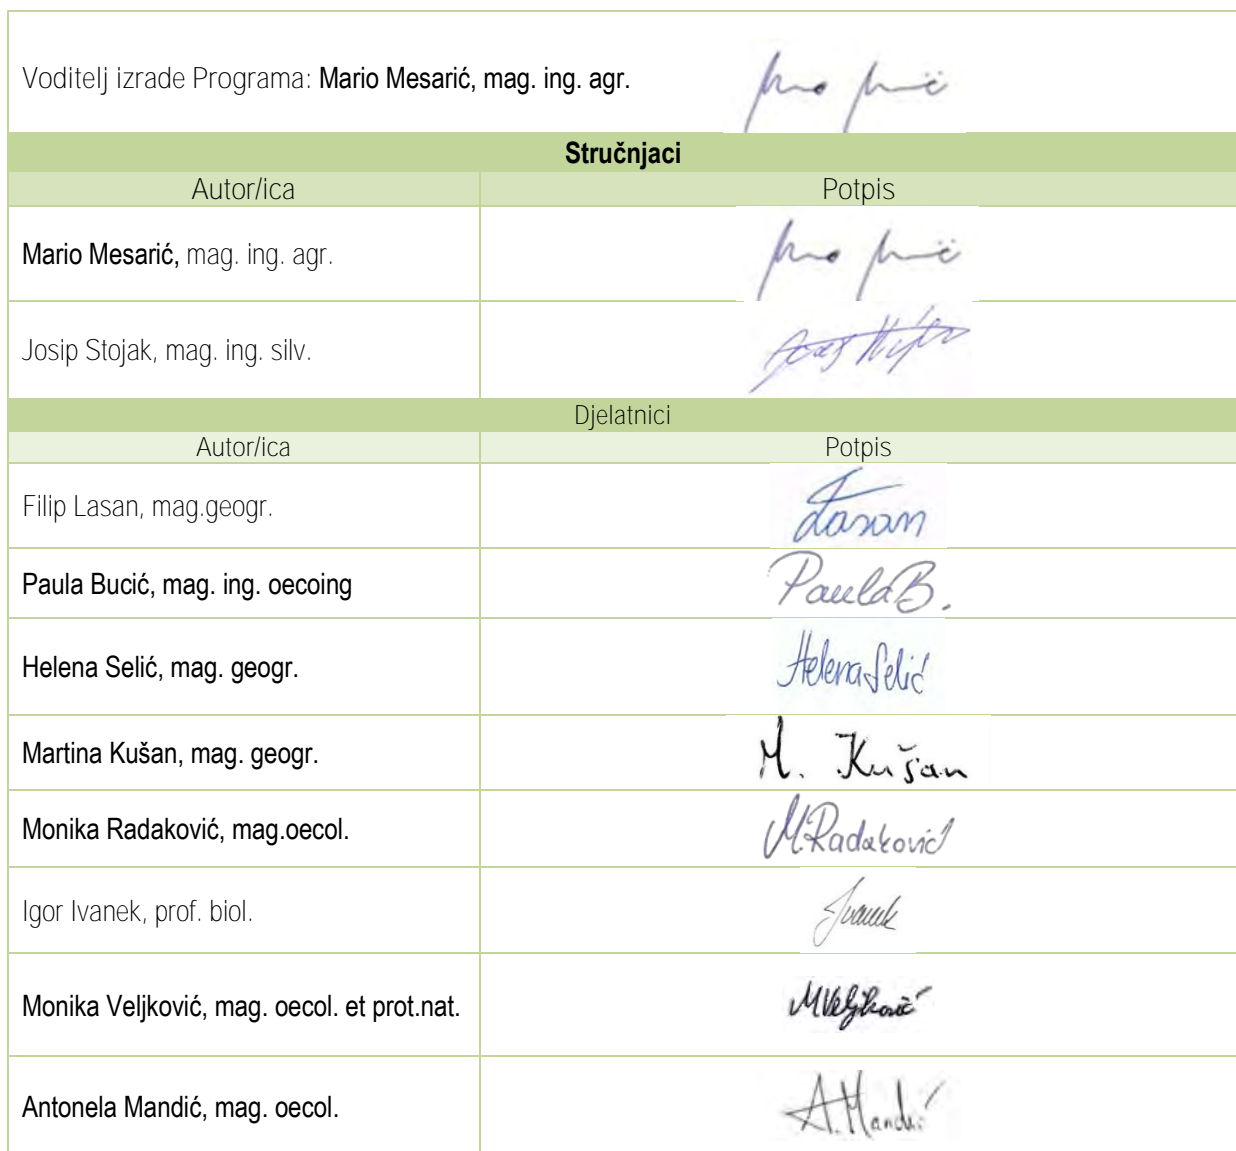 Voditelj izrade Programa: Mario Mesarić, mag. ing. agr.
Stručnjaci
Autor/ica Potpis
Mario Mesarić, mag. ing. agr.
Josip Stojak, mag. ing. silv.
Djelatnici
Autor/ica Potpis
Filip Lasan, mag.geogr. Lasan
Paula Bucić, mag. ing. oecoing Paula B.
Helena Selić, mag. geogr. Helena Selić
Martina Kušan, mag. geogr. M. Kušan
Monika Radaković, mag.oecol. MRadaković
Igor Ivanek, prof. biol. Ivanek
Monika Veljković, mag. oecol. et prot.nat. MVeljković
Antonela Mandić, mag. oecol. A. Mandić